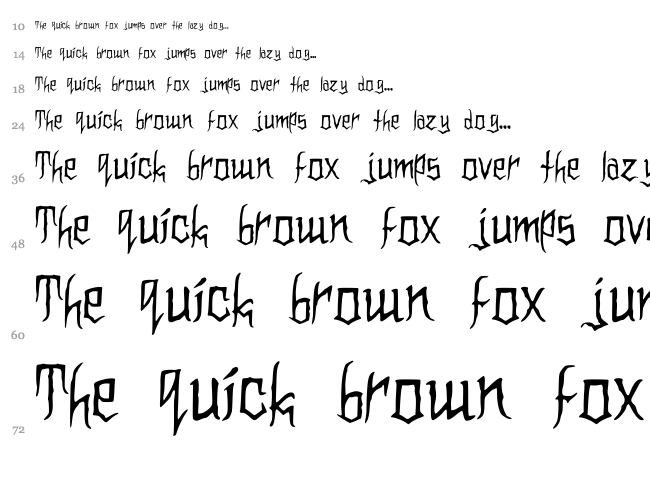 10 The quick brown fox jumps over the lazy dog...
14 The quick brown fox jumps over the lazy dog...
18 The quick brown fox jumps over the lazy dog...
24 The quick brown fox jumps over the lazy dog...
36 The quick brown fox jumps over the lazy
48 The quick brown fox jumps ov
60 The quick brown fox jum
72 The quick brown fox